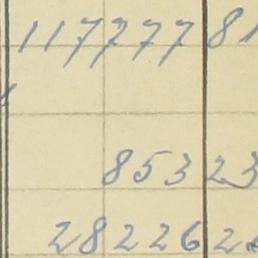 11777781
85323
282262